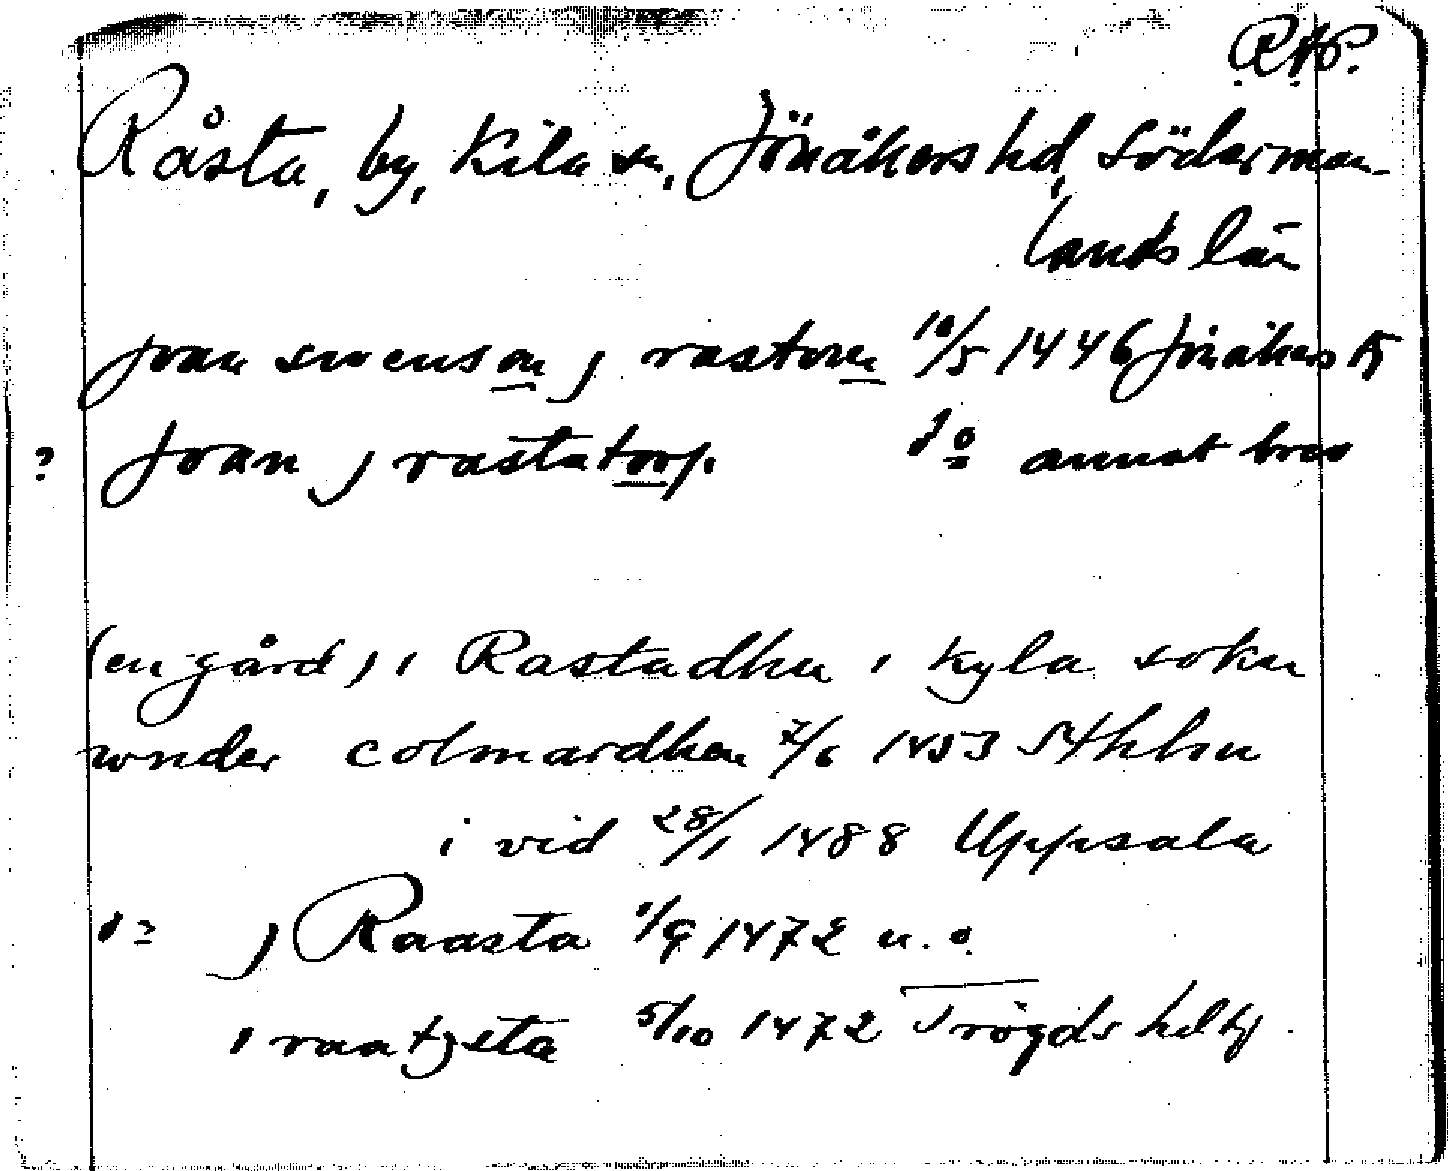 RAP.
Råsta, by, Kila sn, Jönåkers hd, Söderman-
lands län
joan swenson j rastom 10/5 1446 Jönåkers tg
? Joan j rastatorp. do annat brev
(en gård) i Rastadhu i Kyla sokn
wnder colmardhen 7/6 1453 Sthlm
i vid 28/1 1488 Uppsala
do j Raasta 1/9 1472 u. o.
i raatzsta 5/10 1472 Trögds hd tg.